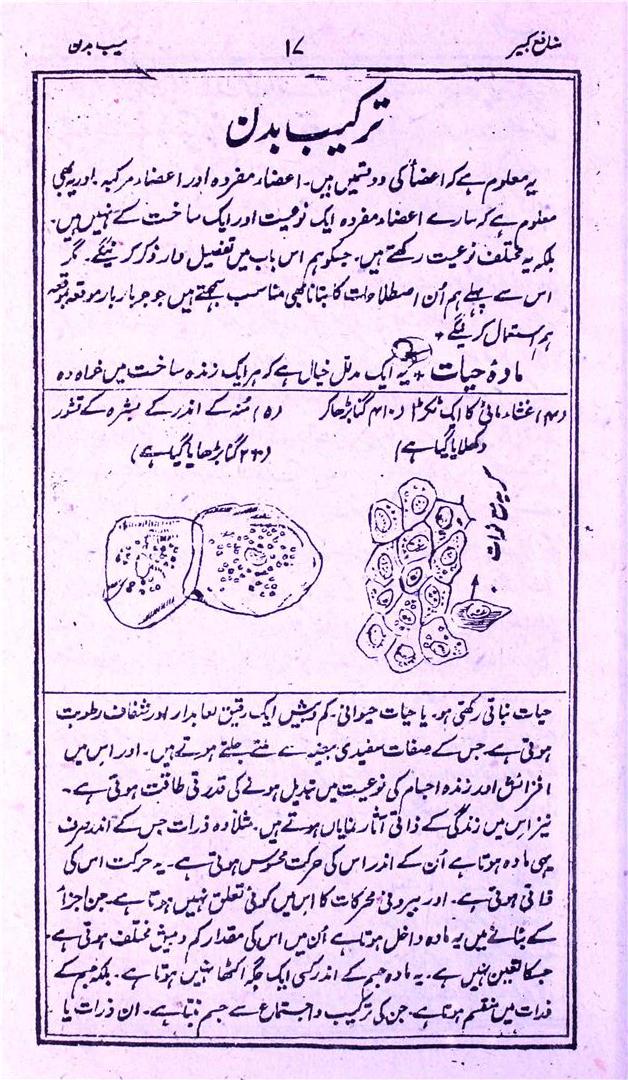 منافع کبیر ۱۷ ترکیب بدن
ترکیب بدن
یہ معلوم ہے کہ اعضأ کی دو قسمیں ہیں۔ اعضاء مفردہ اور اعضاء مرکبہ۔ اور یہ بھی
معلوم ہے کہ سارے اعضاء مفردہ ایک نوعیت اور ایک ساخت کے نہیں ہیں۔
بلکہ یہ مختلف نوعیت رکھتے ہیں۔ جسکو ہم اس باب میں تفصیل وار ذکر کرینگے۔ مگر
اس سے پہلے ہم اُن اصطلاحات کا بتانا بھی مناسب سمجھتے ہیں جو جو بار بار موقعہ بموقعہ
ہم استعمال کرینگے +
مادۂ حیات + یہ ایک مدلل خیال ہے کہ ہر ایک زندہ ساخت میں خواہ وہ
(۴) غشاء مائی کا ایک ٹکڑا (۴۱۰ گنا بڑھا کر
دکھلایا گیا ہے)
(۵) مُنہ کے اندر کے بشرہ کے قشور
(۲۶۰ گنا بڑھایا گیا ہے)
ذرات
حیات نباتی رکھتی ہو۔ یا حیات حیوانی۔ کم و بیش ایک رقیق لعابدار اور شفاف رطوبت
ہوتی ہے جس کے صفات سفیدی بیضہ سے ملتے جلتے ہوتے ہیں۔ اور اس میں
افزائش اور زندہ اجسام کی نوعیت میں تبدیل ہونے کی قدرتی طاقت ہوتی ہے۔
نیز اس میں زندگی کے ذاتی آثار نمایاں ہوتے ہیں۔ مثلاً وہ ذرات جس کے اندر صرف
یہی مادہ ہوتا ہے اُن کے اندر اس کی حرکت محسوس ہوتی ہے۔ یہ حرکت اس کی
ذاتی ہوتی ہے۔ اور بیرونی محرکات کا اس میں کوئی تعلق نہیں ہوتا ہے۔ جن اجزأ
کے بنانے میں یہ مادہ داخل ہوتا ہے اُن میں اس کی مقدار کم و بیش مختلف ہوتی ہے۔
جسکا تعین نہیں ہے۔ یہ مادہ جسم کے اندر کسی ایک جگہ اکٹھا نہیں ہوتا ہے۔ بلکہ جسم کے
ذرات میں منقسم ہوتا ہے۔ جن کی ترکیب و اجتماع سے جسم بنتا ہے۔ ان ذرات یا